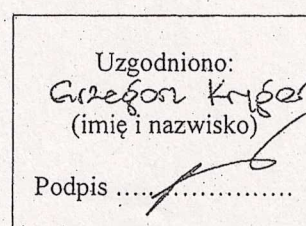 Uzgodniono:
Grzegorz Kryger
(imię i nazwisko)
Podpis ......................